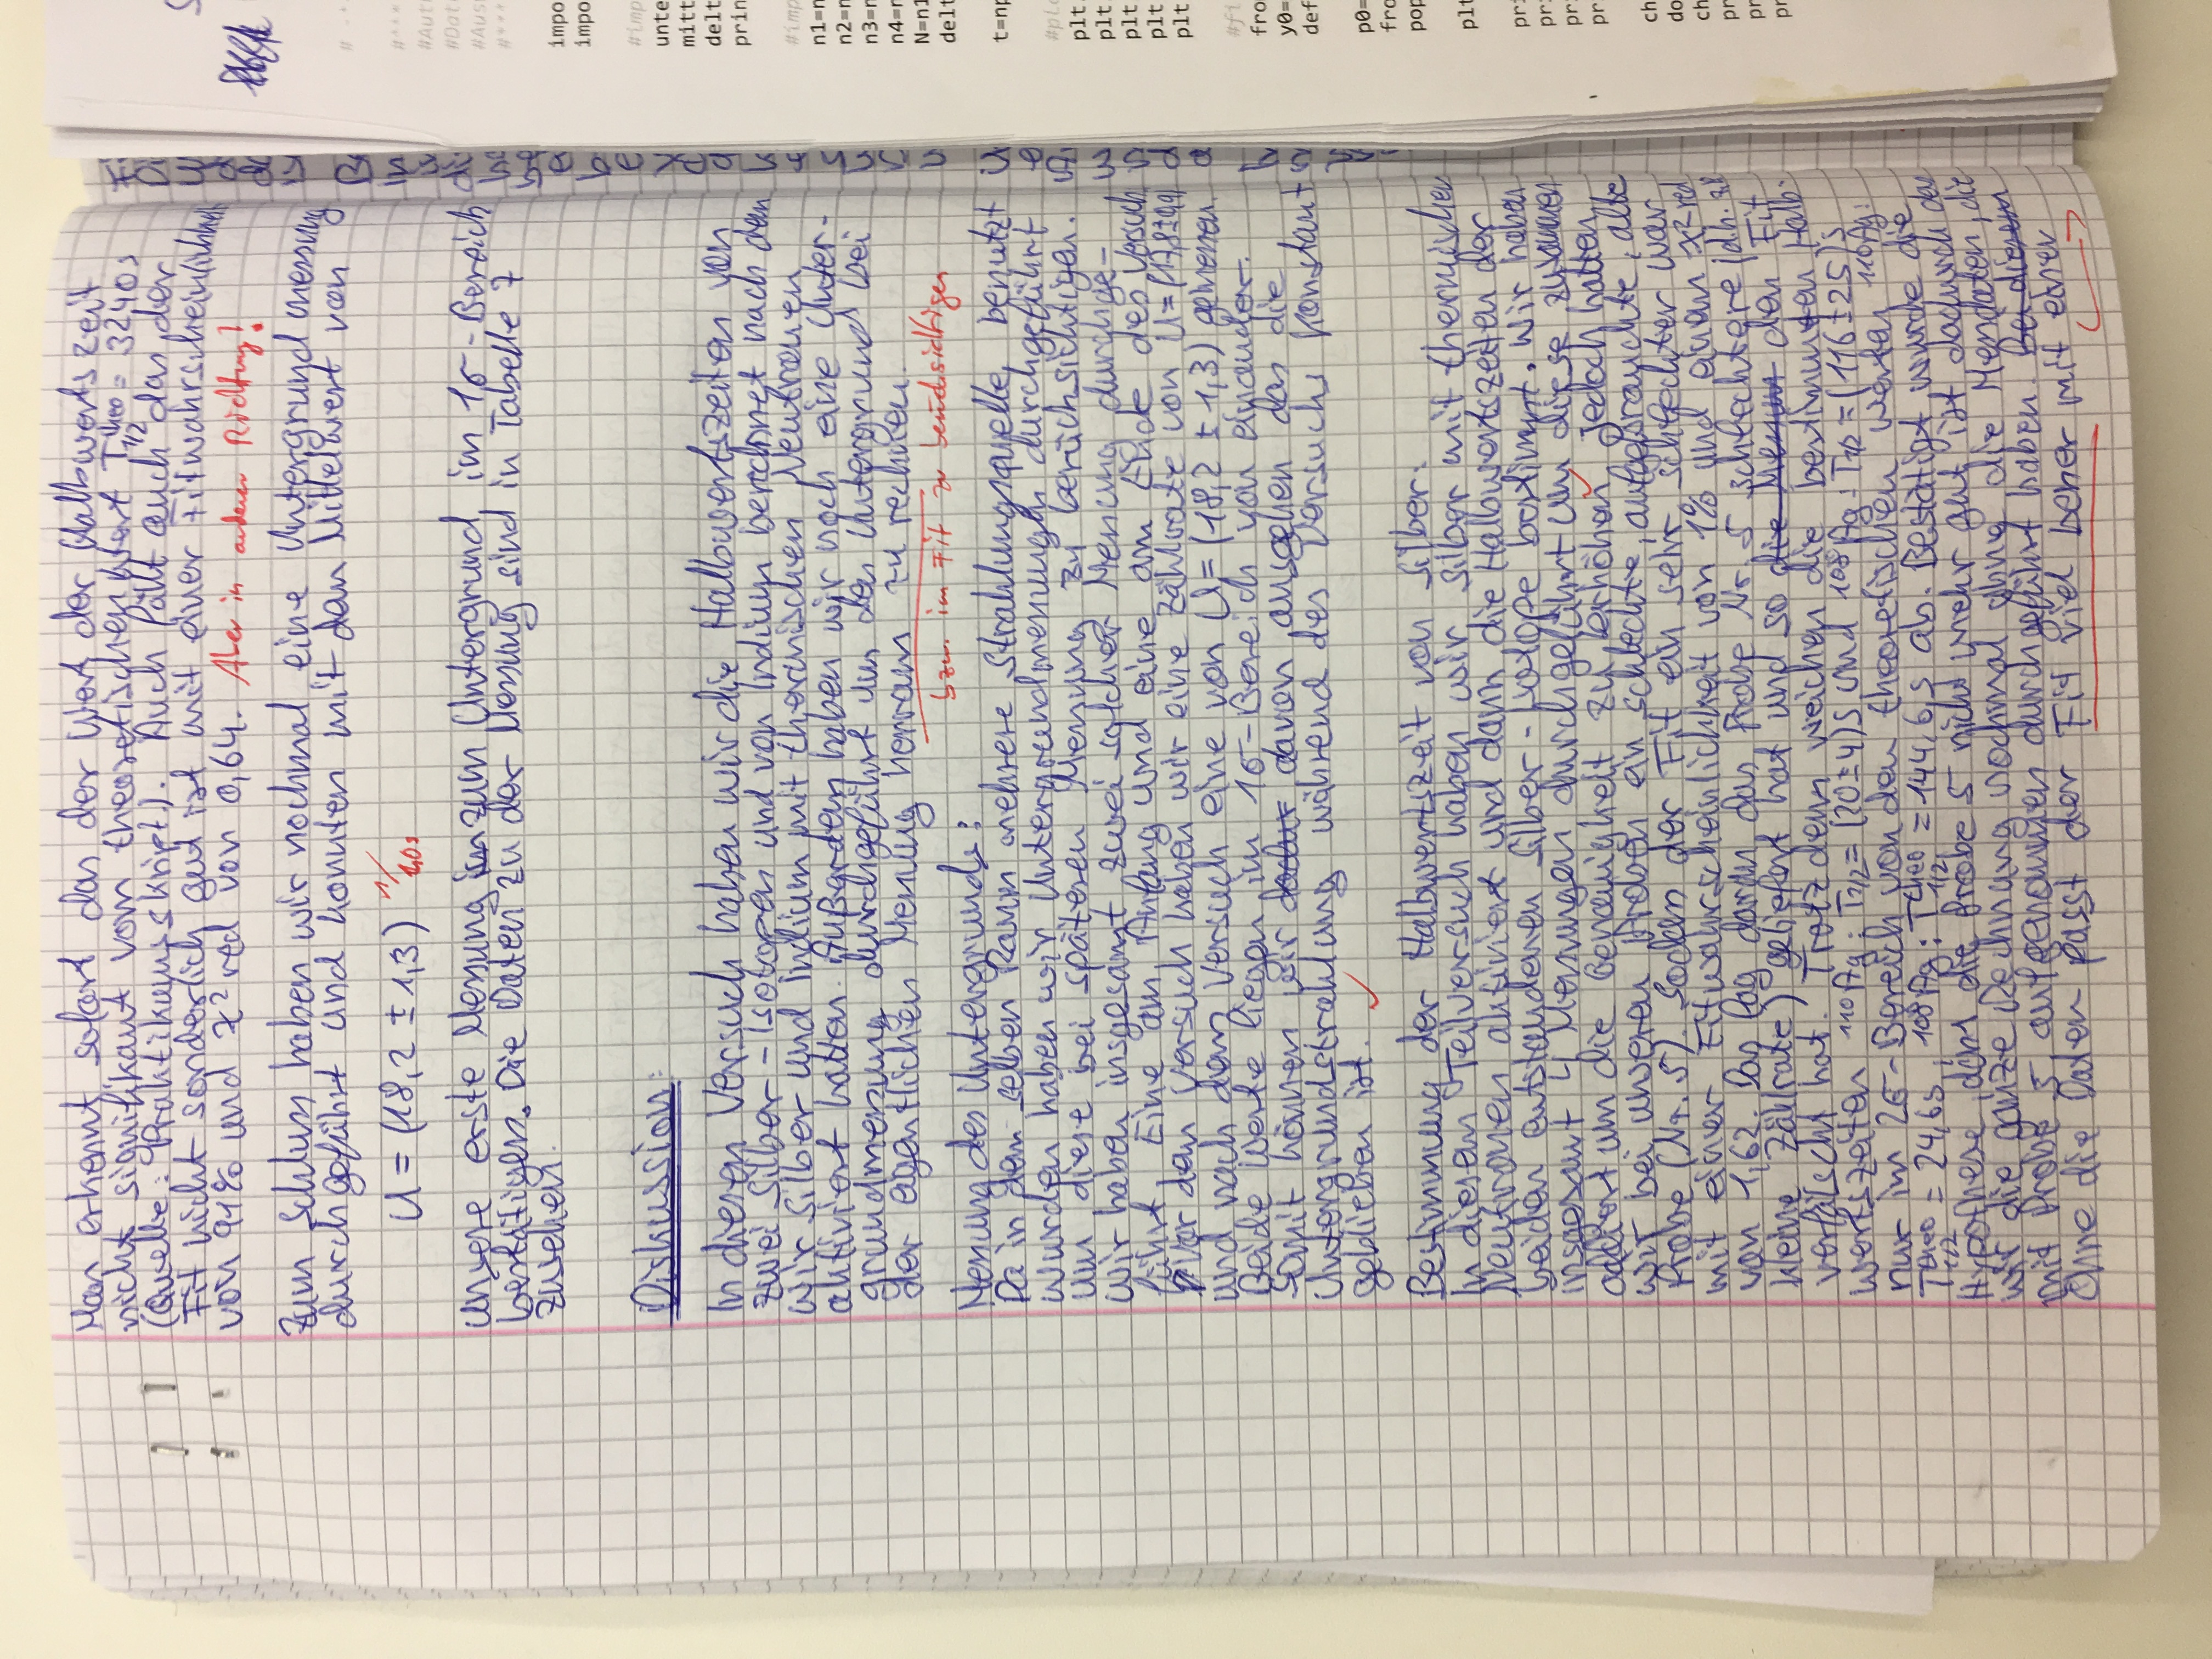 Man erkennt sofort das der Wert der Halbwertszeit
nicht signifikant vom theoretischen Wert T½^theo = 3240s
(Quelle: Praktikumsskript). Auch fällt auch das der
Fit nicht sonderlich gut ist mit einer Fitwahrscheinlichkeit
von 91% und χ² red von 0,64. Aber in anderer Richtung!
Zum Schluss haben wir nochmal eine Untergrundmessung
durchgeführt und konnten mit dem Mittelwert von
U = (18,2 ± 1,3) 1/10s
unsere erste Messung zum Untergrund im 1σ-Bereich
bestätigen. Die Daten zu der Messung sind in Tabelle 7
zusehen.
Diskussion:
In diesen Versuch haben wir die Halbwertszeiten von
zwei Silber-Isotopen und von Indium berechnet nach dem
wir Silber und Indium mit thermischen Neutronen
aktiviert hatten. Außerdem haben wir noch eine Unter-
grundmessung durchgeführt um den Untergrund bei
der eigentlichen Messung herraus zu rechnen.
bzw. im Fit zu berücksichtigen
Messung des Untergrunds:
Da in dem selben Raum mehrere Strahlungsquelle benutzt
wurden haben wir Untergrundmessungen durchgeführt
um diese bei späteren Messung zu berücksichtigen.
Wir haben insgesamt zwei solcher Messung durchge-
führt. Eine am Anfang und eine am Ende des Versuch
Vor dem Versuch haben wir eine Zählrate von U=(17,8±0,9)
und nach dem Versuch eine von U=(18,2 ± 1,3) gemessen.
Beide Werte liegen im 1σ-Bereich von einander.
Somit können wir davon ausgehen das die
Untergrundstrahlung während des Versuchs konstant
geblieben ist.
Bestimmung der Halbwertszeit von Silber:
In diesem Teilversuch haben wir Silber mit thermischen
Neutronen aktiviert und dann die Halbwertszeiten der
beiden entstandenen Silber-Isotope bestimmt. Wir haben
insgesamt 4 Messungen durchgeführt um diese zusammen
addiert um die Genauigkeit zu erhöhen, jedoch hatten
wir bei unseren Proben ein schlechte, aufgebrauchte, alte
Probe (Nr. 5). Sodass der Fit ein sehr schlechter war
mit einer Fitwahrscheinlichkeit von 1% und einem χ² red
von 1,62. Das lag daran das Probe Nr. 5 schlechtere (d.h.
kleine Zählrate) geliefert hat und so die Messun den Fit
verfälscht hat. Trotzdem weichen die bestimmten Halb-
wertszeiten ¹¹⁰Ag: T½=(20±4)s und ¹⁰⁸Ag: T½=(116±25)s
nur im 2σ-Bereich von den theoretischen werten ¹¹⁰Ag:
T½^theo = 24,6s, ¹⁰⁸Ag: T½^theo = 144,6s ab. Bestätigt wurde die
Hypothese, dass die Probe 5 nicht mehr gut ist dadurch das
wir die ganze Rechnung nochmal ohne die Messdaten, die
mit Probe 5 aufgenommen durchgeführt haben. Bei diesem
Ohne die Daten passt der Fit viel besser mit einer
impo
impo
unte
mitt
delt
prin
n1=n
n2=n
n3=n
n4=n
N=n1
delt
t=np
plt.
plt.
plt.
plt.
plt.
fro
y0=
def
p0=
fro
pop
plt
pri
pri
pri
pr
ch
do
ch
pr
pr
pr